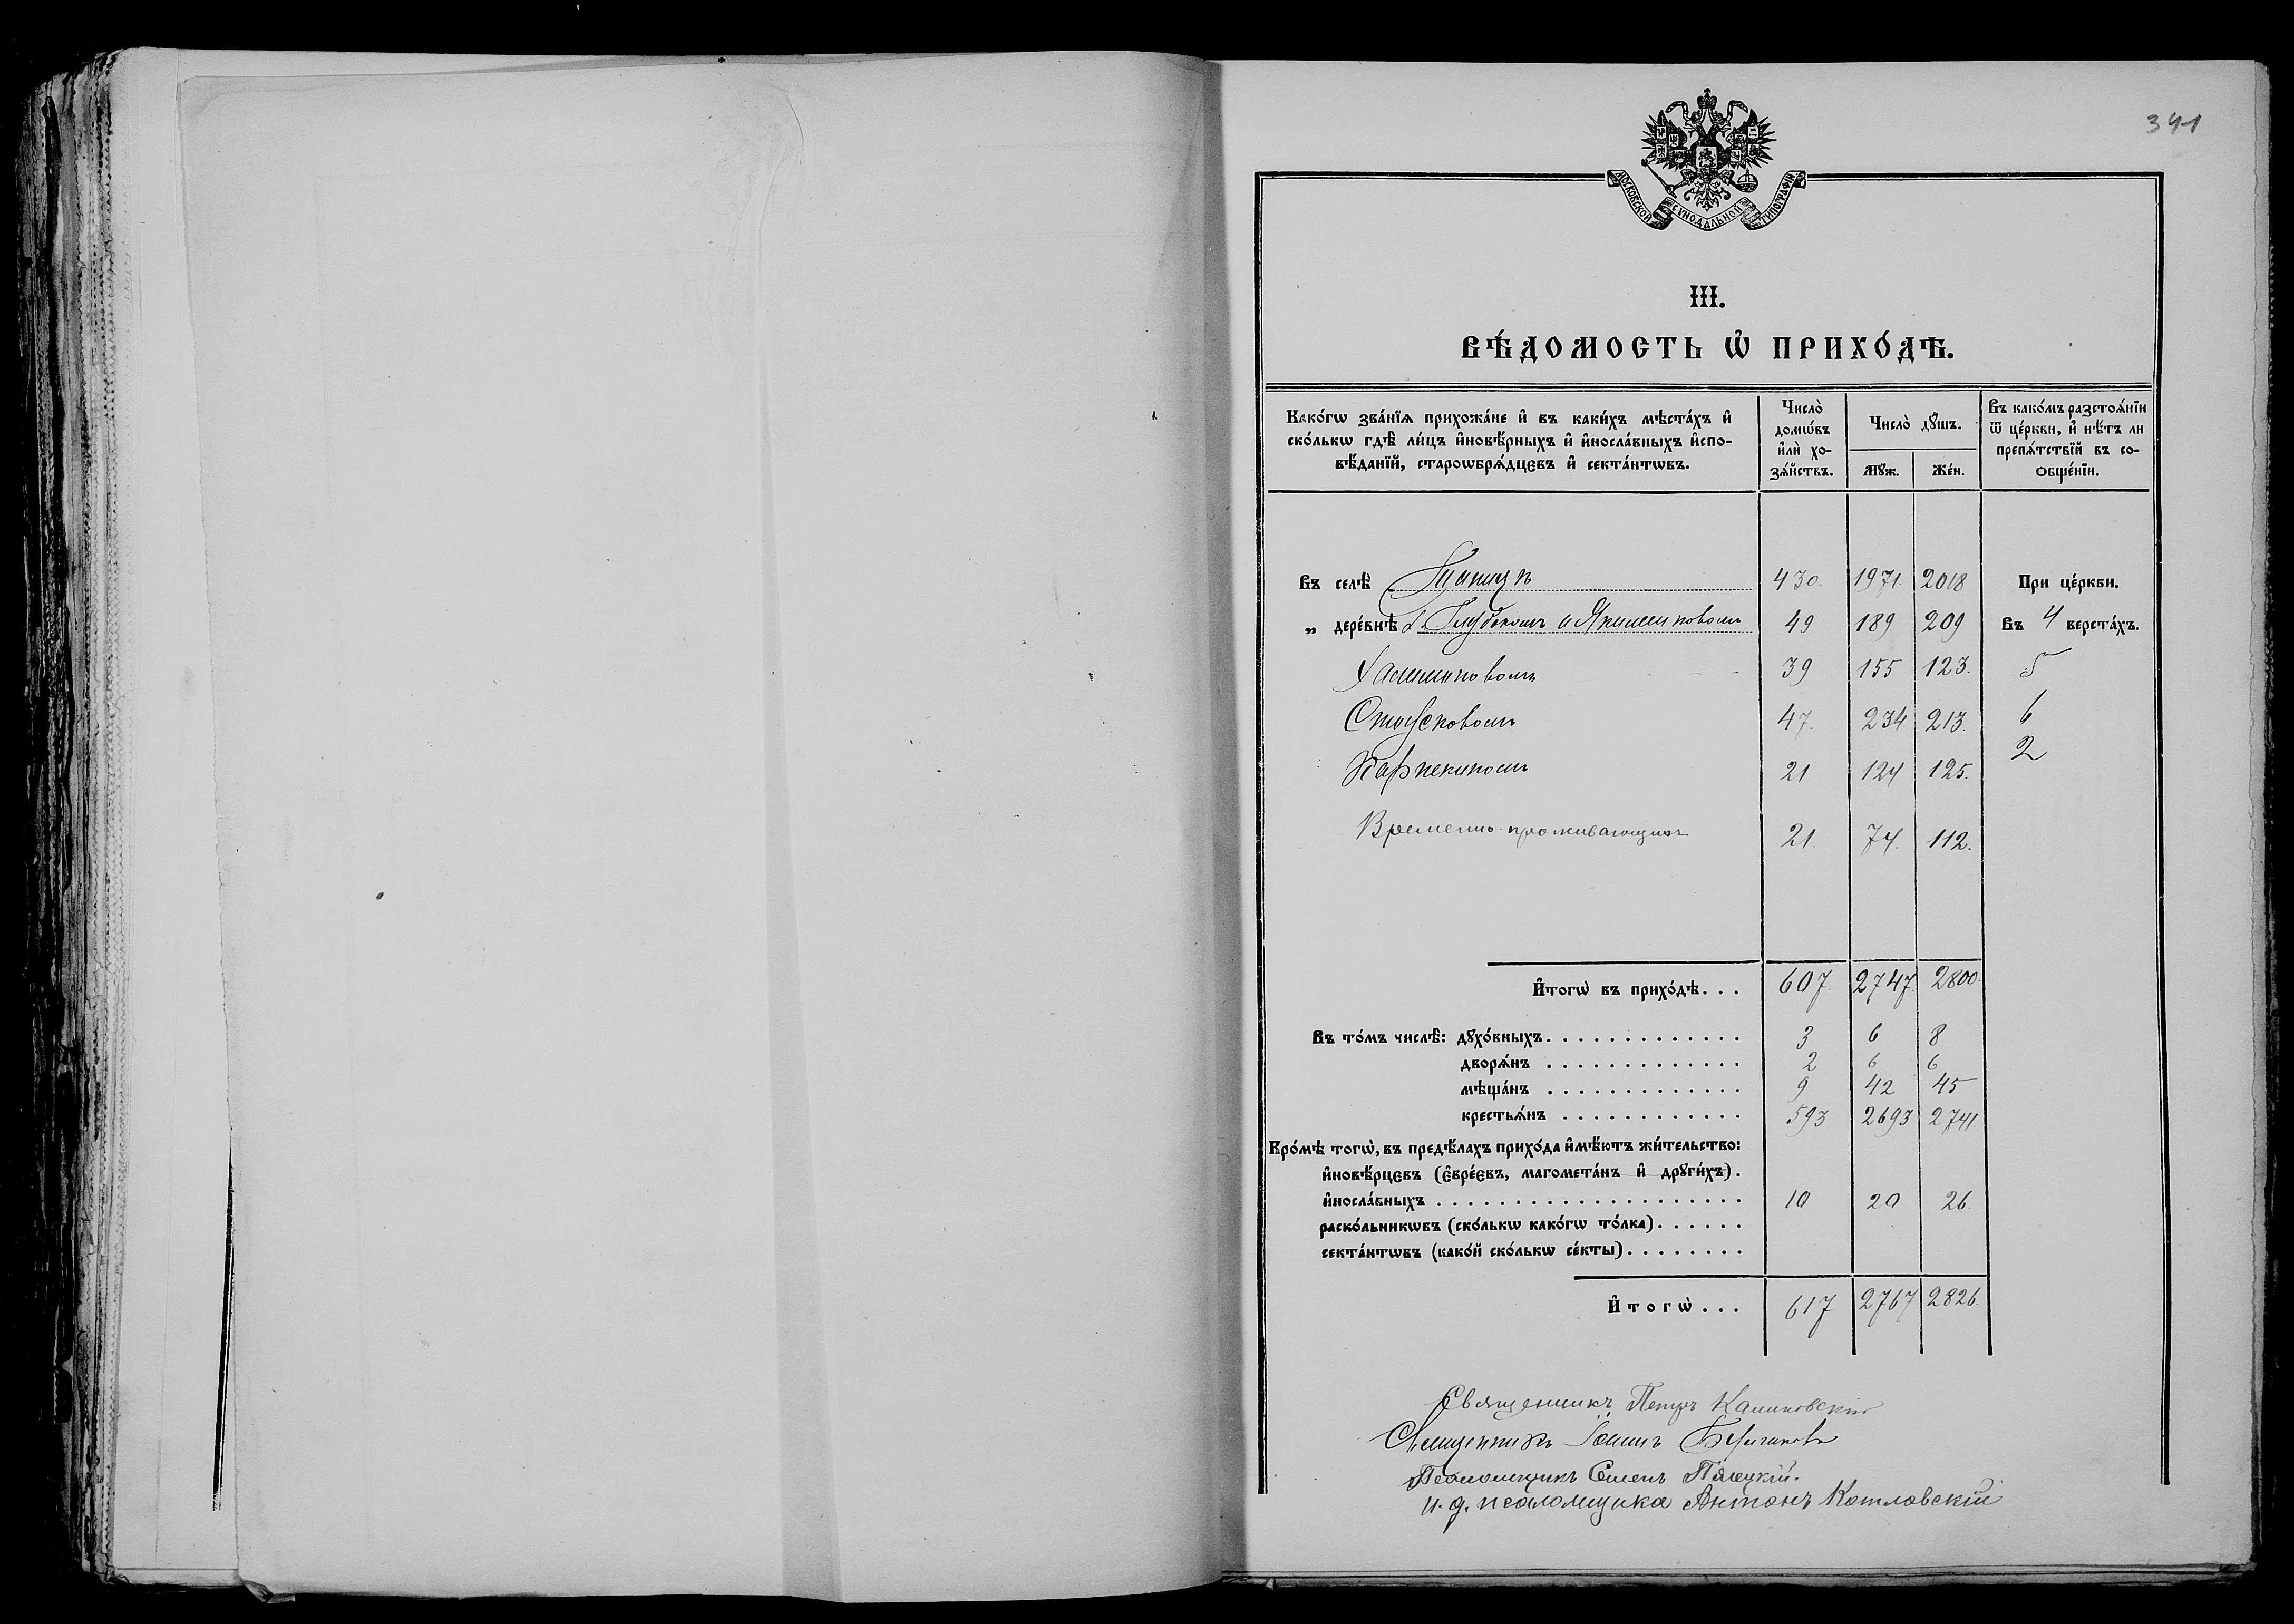 341
МОСКОВСКОЙ СѴНОДАЛЬНОЙ ТИПОГРАФІИ
III.
ВѢ́ДОМОСТЬ Ѡ҆ ПРИХО́ДѢ.
Како́гѡ зва́нїѧ прихожа́не и҆ въ каки́хъ мѣста́хъ и҆
ско́лькѡ гдѣ̀ ли́цъ и҆новѣ́рныхъ и҆ и҆носла́вныхъ и҆спо-
вѣ́данїй, староѡбрѧ́дцєвъ и҆ секта́нтѡвъ.
Число̀
домѡ́въ
и҆лѝ хо-
зѧ́йствъ.
Число̀ дꙋ́шъ.
Мꙋ́ж.
Же́н.
Въ како́мъ разстоѧ́нїи
ѿ це́ркви, и҆ нѣ́тъ ли
препѧ́тствїй въ со-
ѻбще́нїи.
Въ селѣ̀ 430. 1971. 2018 При це́ркви.
„ дере́внѣ д. Глубокомъ и Якимиковомъ 49 189 209 Въ 4 верста́хъ.
39 155 123. 5
47. 234 213. 6
21 124 125. 2
Временно-проживающихъ 21. 74. 112.
И҆тогѡ̀ въ прихо́дѣ. . . 607. 2747. 2800.
Въ то́мъ числѣ̀: дꙋхо́вныхъ. 3 6 8
дворѧ́нъ 2 6 6
мѣща́нъ 9 42 45
крестьѧ́нъ 593 2693 2741.
Кро́мѣ тогѡ̀, въ предѣ́лахъ прихо́да и҆мѣ́ютъ жи́тельство:
и҆новѣ́рцєвъ (є҆вре́євъ, магомета́нъ и҆ дрꙋги́хъ).
и҆носла́вныхъ 10 20 26.
раско́льникѡвъ (ско́лькѡ како́гѡ то́лка)
секта́нтѡвъ (како́й ско́лькѡ се́кты)
И҆тогѡ̀ . . . 617 2767 2826.
Священникъ Петръ Калиновскій
Священникъ Іоаннъ
Псаломщикъ Семенъ Пясецкій.
и. д. псаломщика Антонъ Котловскій